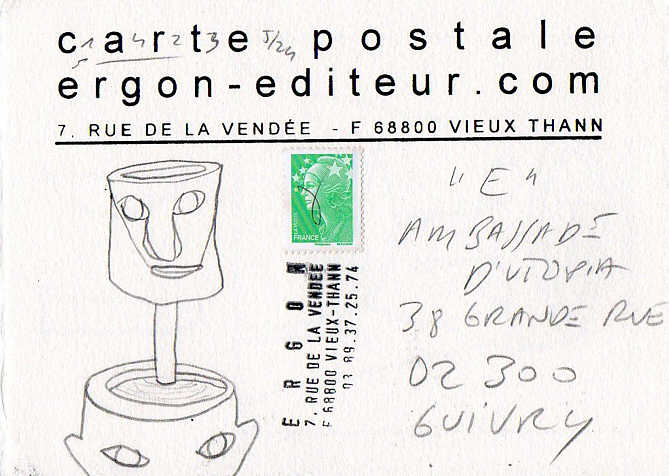 carte postale
ergon-editeur.com
7. RUE DE LA VENDÉE - F 68800 VIEUX THANN
FRANCE
ERGON
7. RUE DE LA VENDEE
F 68800 VIEUX-THANN
03 89.37.25.74
"E"
AMBASSADE
D'UTOPIA
38 GRANDE RUE
02300
GUIVRY